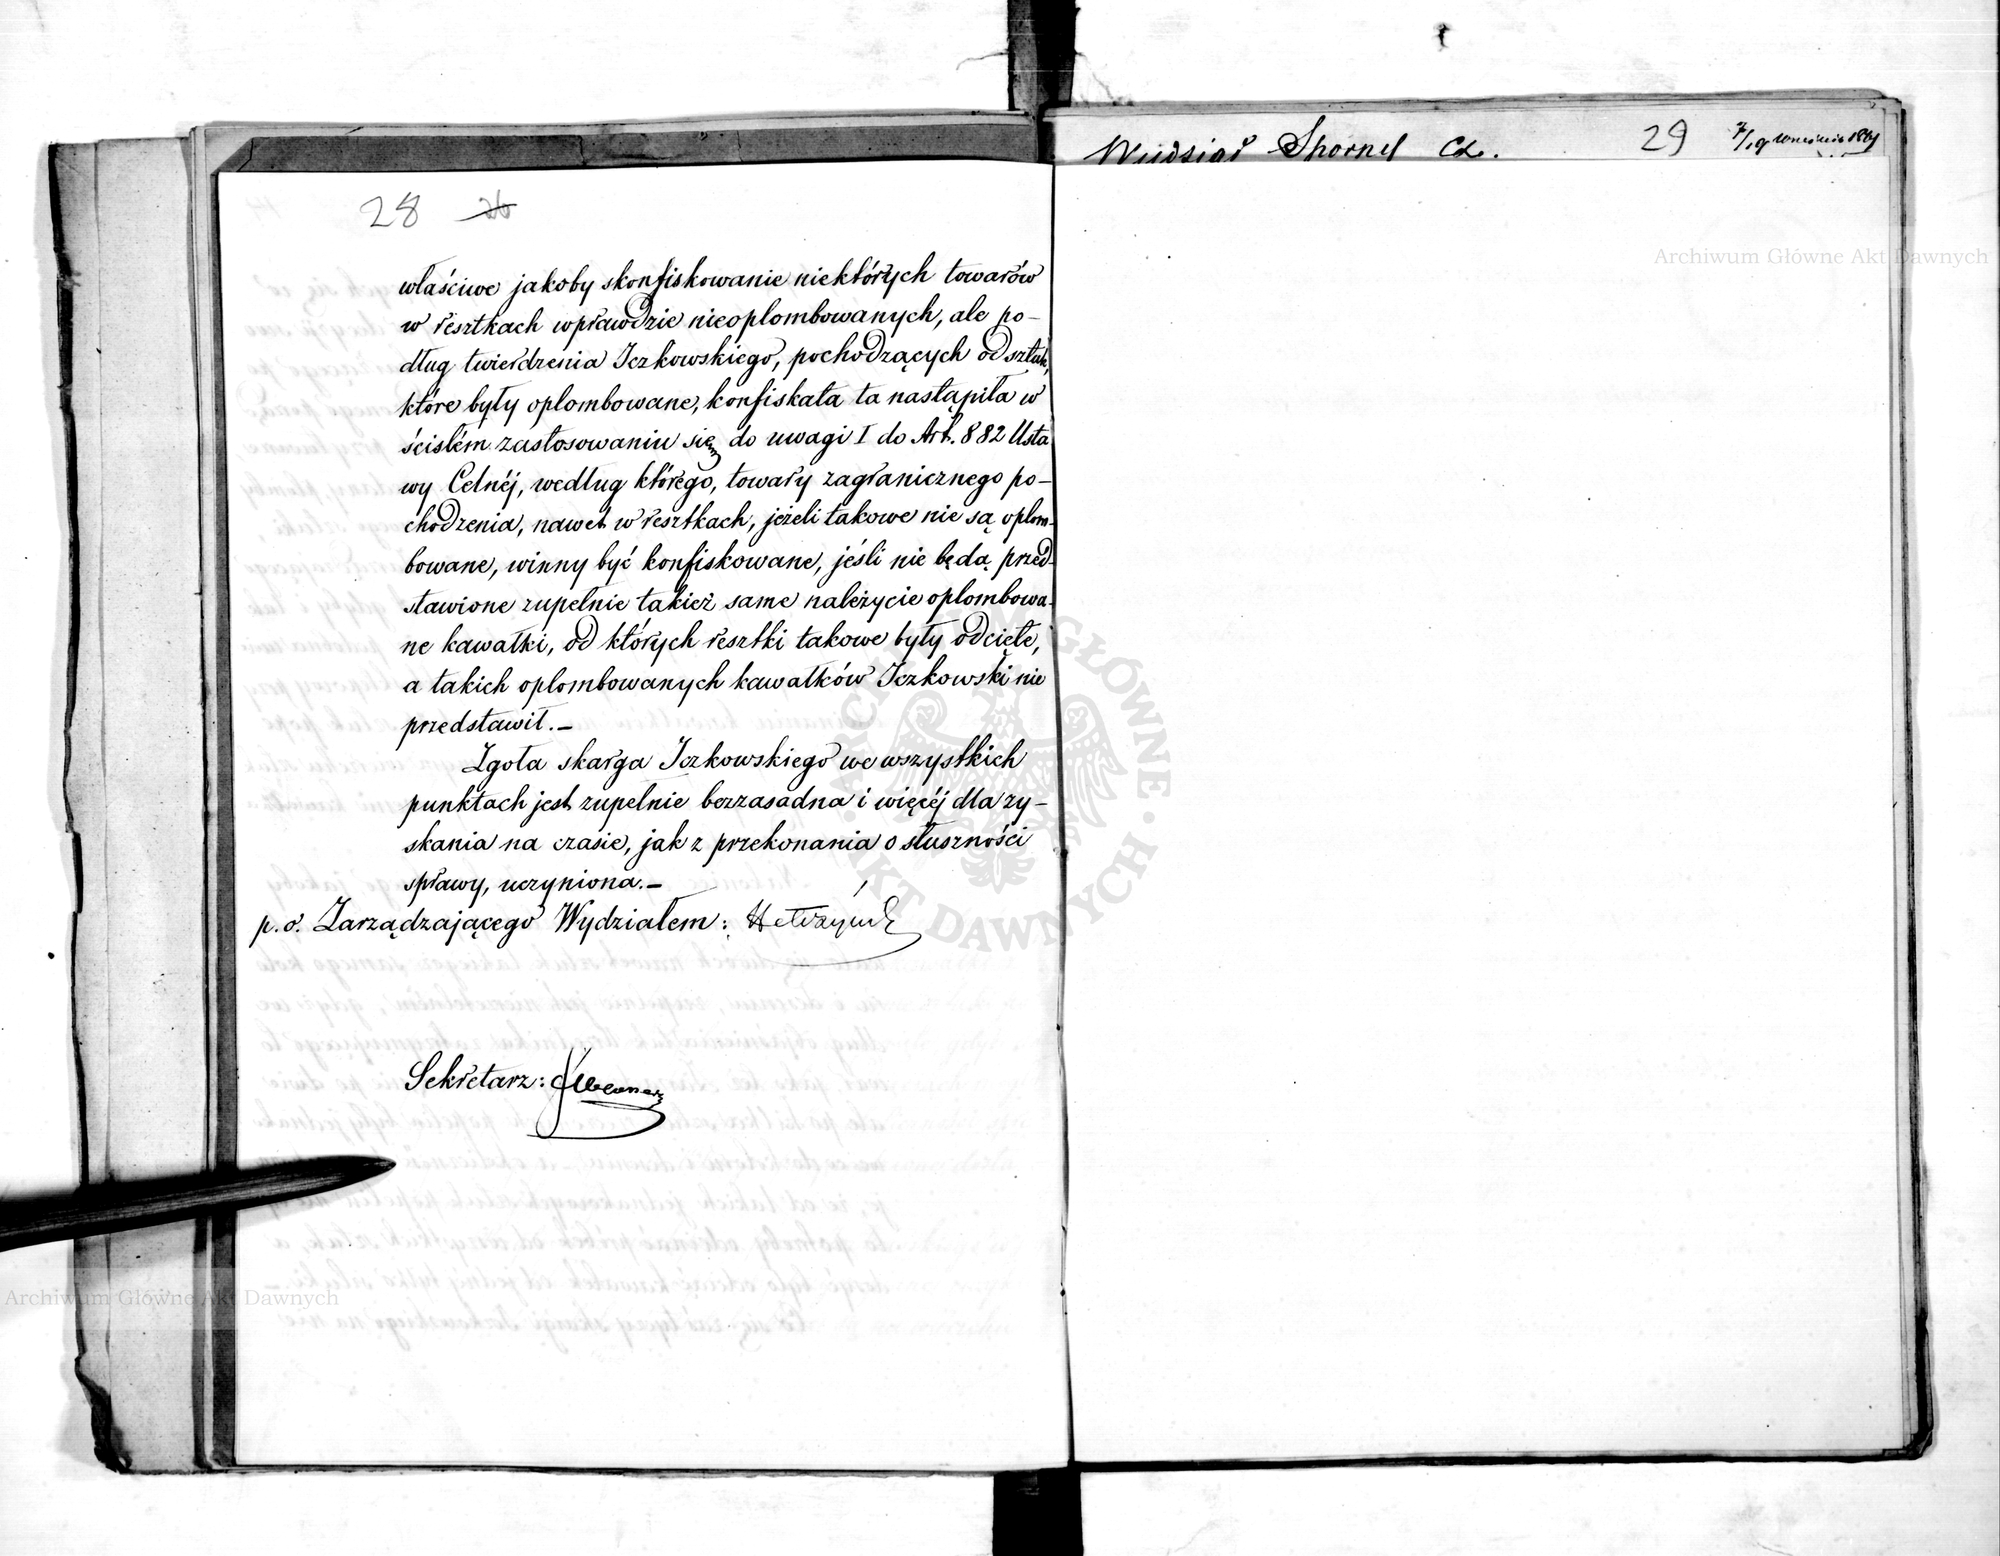 28 26
właściwe jakoby skonfiskowanie niektórych towarów
w resztkach wprawdzie nieoplombowanych, ale po-
dług twierdzenia Iczkowskiego, pochodzących od sztuk,
które były oplombowane, konfiskata ta nastąpiła w
ścisłém zastosowaniu się do uwagi I do Art. 882 Usta
wy Celnéj, według którego, towary zagranicznego po-
chodzenia, nawet w resztkach, jeżeli takowe nie są oplom-
bowane, winny być konfiskowane, jeśli nie będą przed-
stawione zupełnie takież same należycie oplombowa-
ne kawałki, od których resztki takowe były odcięte,
a takich oplombowanych kawałków Iczkowski nie
przedstawił.—
Zgoła skarga Iczkowskiego we wszystkich
punktach jest zupełnie bezzasadna i więcéj dla zy-
skania na czasie, jak z przekonania o słuszności
sprawy, uczyniona.—
p.o. Zarządzającego Wydziałem:
Sekretarz:
29
Archiwum Główne Akt Dawnych
Archiwum Główne Akt Dawnych
ARCHIWUM GŁÓWNE · AKT DAWNYCH ·